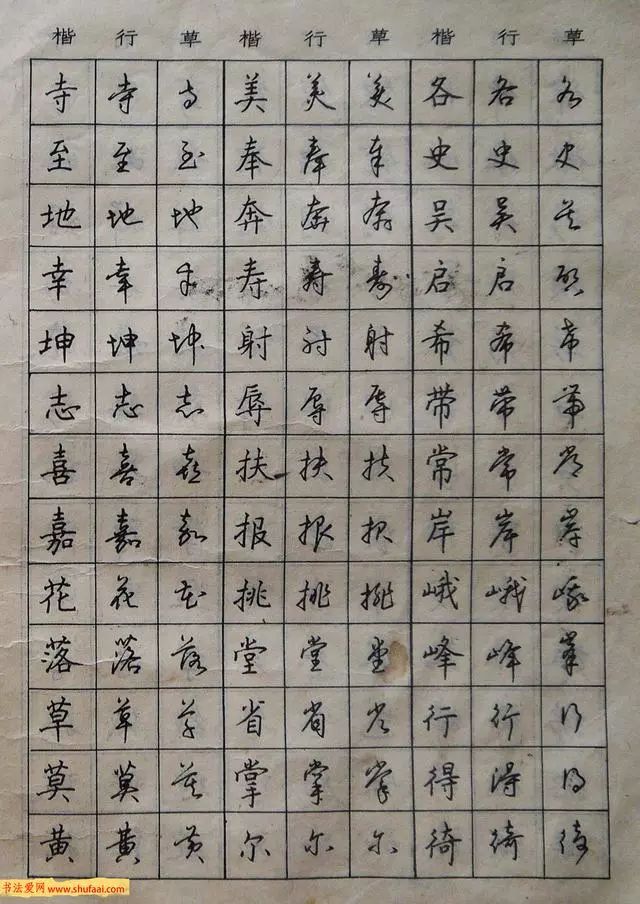 楷 行 草 楷 行 草 楷 行 草
寺 寺 寺 美 美 美 各 各 各
至 至 至 奉 奉 奉 史 史 史
地 地 地 奔 奔 奔 吴 吴 吴
幸 幸 幸 寿 寿 寿 启 启 启
坤 坤 坤 射 射 射 希 希 希
志 志 志 辱 辱 辱 带 带 带
喜 喜 喜 扶 扶 扶 常 常 常
嘉 嘉 嘉 报 报 报 岸 岸 岸
花 花 花 挑 挑 挑 峨 峨 峨
落 落 落 堂 堂 堂 峰 峰 峰
草 草 草 省 省 省 行 行 行
莫 莫 莫 掌 掌 掌 得 得 得
黄 黄 黄 尔 尔 尔 徛 徛 徛
书法爱网 www.shufaai.com